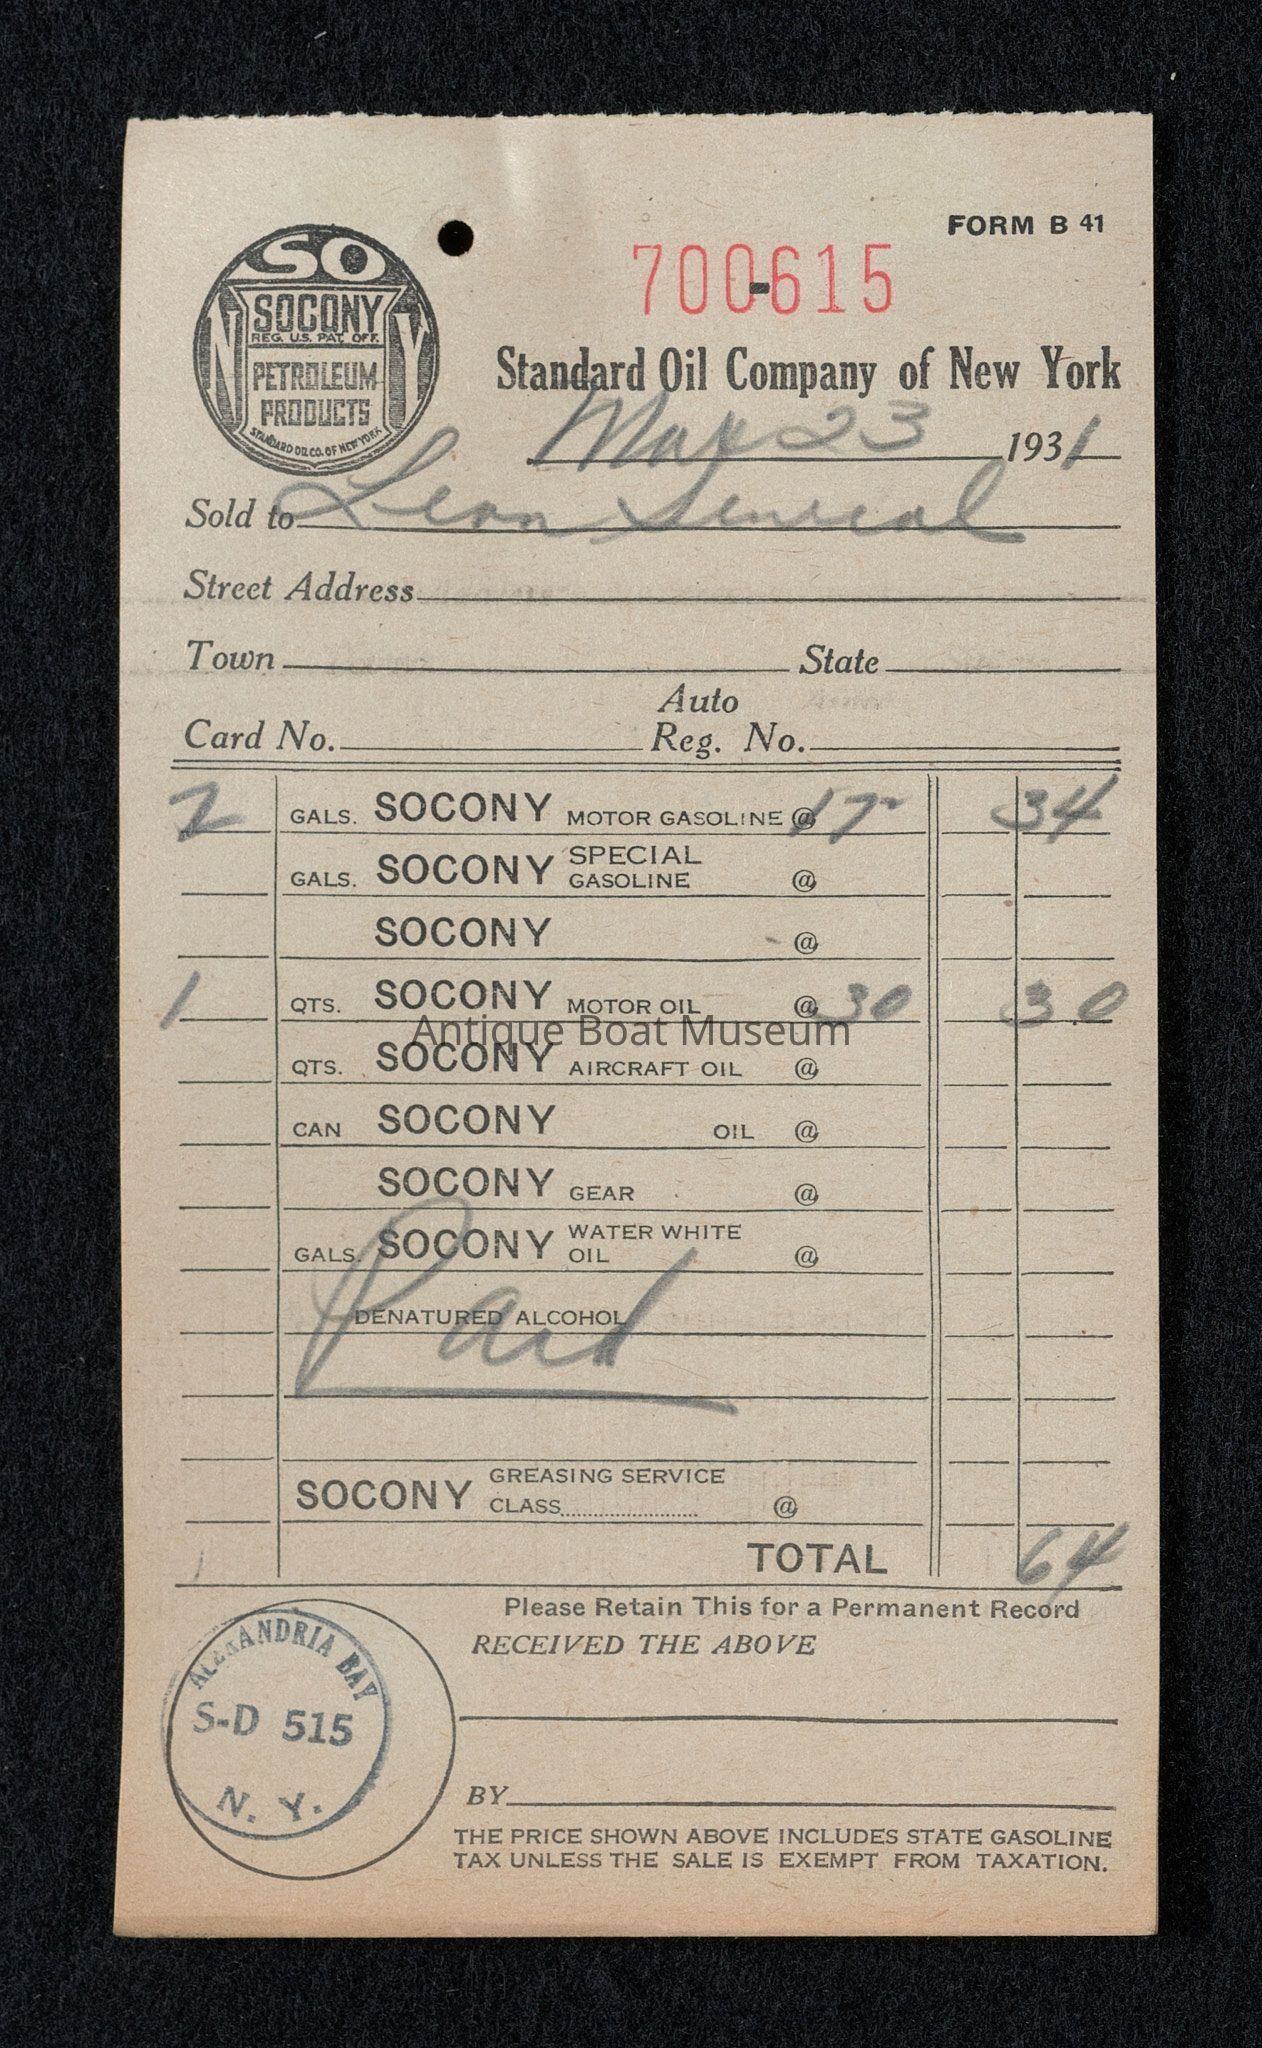 FORM B 41
SO
NY
SOCONY
REG. U.S. PAT. OFF.
PETROLEUM
PRODUCTS
STANDARD OIL CO. OF NEW YORK
700-615
Standard Oil Company of New York
May 23 1931
Sold to Leon Senecal
Street Address
Town State
Card No. Auto Reg. No.
2 GALS. SOCONY MOTOR GASOLINE @ 17 34
GALS. SOCONY SPECIAL GASOLINE @
SOCONY @
1 QTS. SOCONY MOTOR OIL @ 30 30
Antique Boat Museum
QTS. SOCONY AIRCRAFT OIL @
CAN SOCONY OIL @
SOCONY GEAR @
GALS. SOCONY WATER WHITE OIL @
DENATURED ALCOHOL
Paid
SOCONY GREASING SERVICE
CLASS @
TOTAL 64
Please Retain This for a Permanent Record
RECEIVED THE ABOVE
ALEXANDRIA BAY
S-D 515
N. Y.
BY
THE PRICE SHOWN ABOVE INCLUDES STATE GASOLINE
TAX UNLESS THE SALE IS EXEMPT FROM TAXATION.